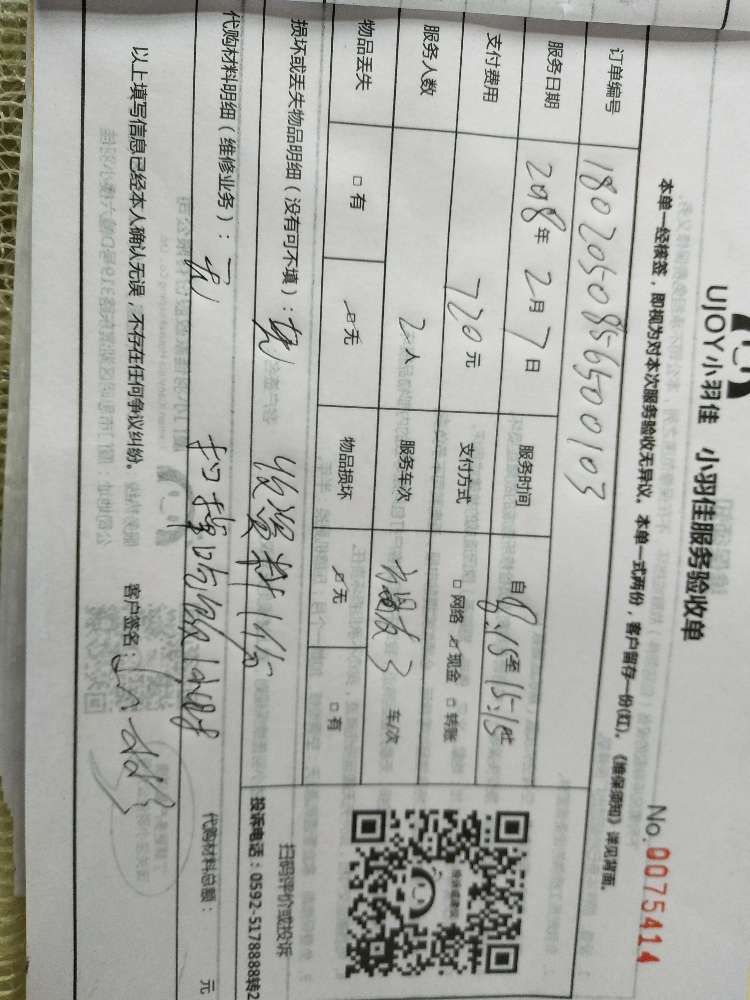 UJOY小羽佳 小羽佳服务验收单
No. 0075414
本单一经核签，即视为对本次服务验收无异议。本单一式两份，客户留存一份(红)。《维保须知》详见背面。
订单编号 180205085650 0103
服务日期 2018年 2月 7日 服务时间 自8:15至15:15止
支付费用 720元 支付方式 □网络 ☑现金 □转账
服务人数 2人 服务车次 车/次
物品丢失 □有 ☑无 物品损坏 ☑无 □有
损坏或丢失物品明细（没有可不填）：无 收资料1份
代购材料明细（维修业务）：无 代购材料总额： 元
以上填写信息已经本人确认无误，不存在任何争议纠纷。 客户签名：
扫码评价或投诉
投诉电话：0592-5178888转2